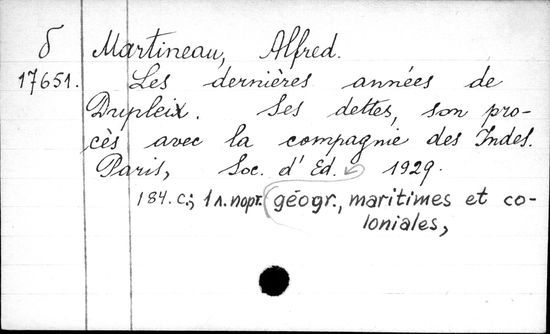 δ Martineau, Alfred.
17651. Les dernières années de
Dupleix. Ses dettes, son pro-
cès avec la compagnie des Indes.
Paris, Soc. d'Ed. 1929.
184. c.; 1 л. порт. géogr., maritimes et co-
loniales,